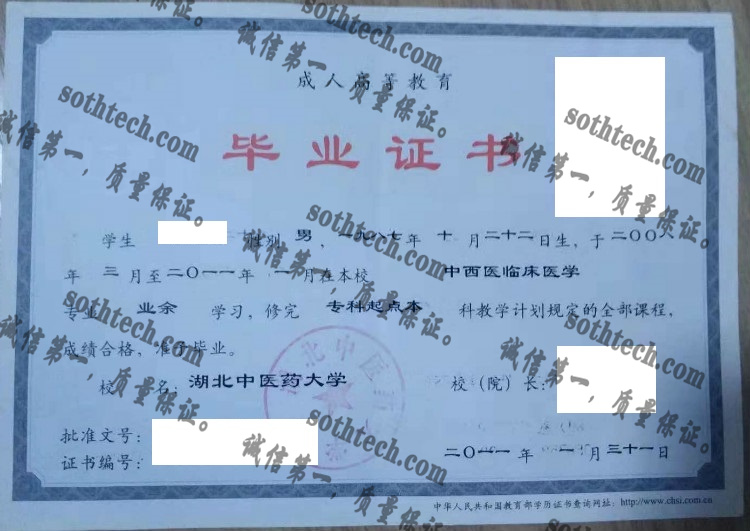 成人高等教育
毕业证书
学生 性别 男，一九八七年 十 月二十二日生，于二〇〇八
年 三 月至二〇一一年 一月在本校 中西医临床医学
专业 业余 学习，修完 专科起点本 科教学计划规定的全部课程，
成绩合格，准予毕业。
校 名：湖北中医药大学 校（院）长：
批准文号：
证书编号：
二〇一一 年 一 月 三十一 日
中华人民共和国教育部学历证书查询网址：http://www.chsi.com.cn
sothtech.com
诚信第一，质量保证。
sothtech.com
诚信第一，质量保证。
sothtech.com
诚信第一，质量保证。
sothtech.com
诚信第一，质量保证。
sothtech.com
诚信第一，质量保证。
sothtech.com
诚信第一，质量保证。
sothtech.com
诚信第一，质量保证。
sothtech.com
诚信第一，质量保证。